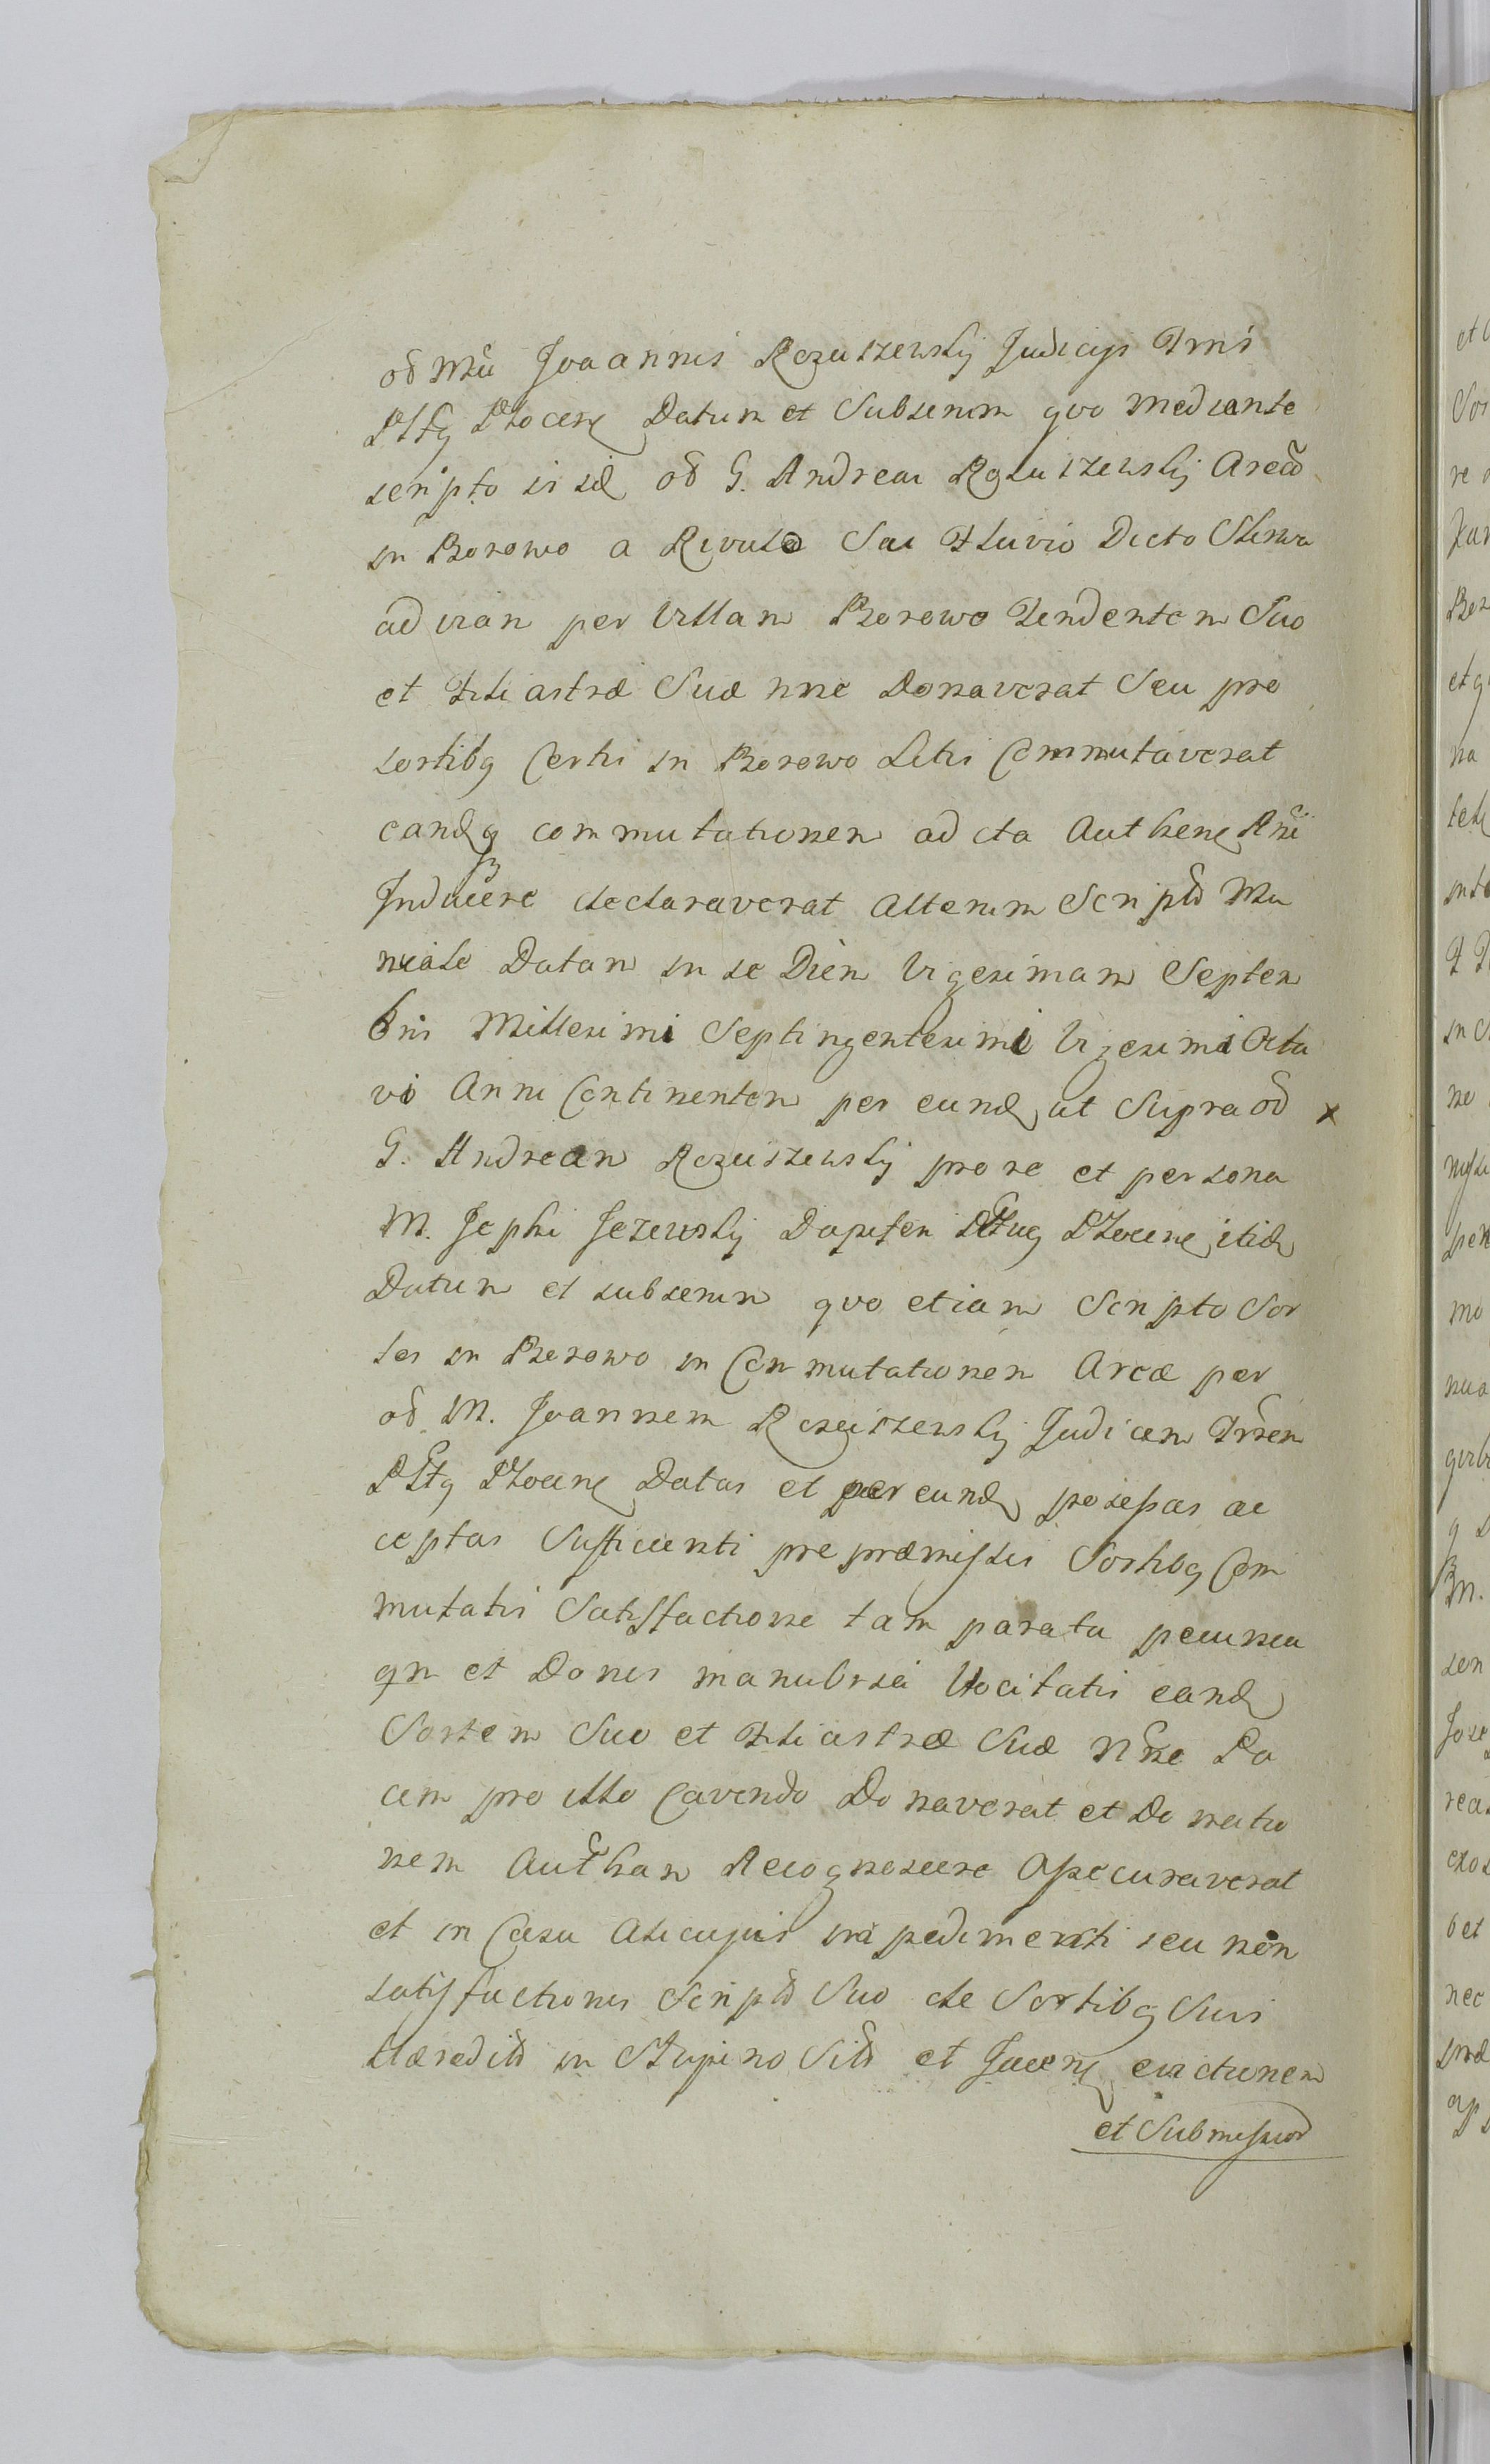 od Mci Joannis Rczuiszewsky Judicijs Trris
Pltq Plocens Datum et Subscrim quo mediante
scripto is id od G. Andreas Rczuiszewsky Aread
in Borowo a Rivulo Seu Fluvio Dicto Skrwa
ad vian per Villam Borowo Tendentem Suo
et Filiastræ Suæ nne Donaverat Seu pro
sortibq Certis in Borowo Sitis Commutaverat
eandq commutationem ad cta Authenq
Inducere declaraverat Alterum Scriptd Ma
nuale Datan in se Diem Vigesimam Septem
bris Millesimi Septingentesimi Vigesimi Octa
vi Anni Continentem per eund ut Supra od
G. Andrean Rczuiszewsky pro re et persona
M. Jephi Jezewsky Dapiferi Plocens itid
Datum et subscrim quo etiam Scripto Sor
tes in Borowo in Commutationem Areæ per
od M. Joannem Rczuiszewsky Judicem Trrem
Pltq Plocens Datas et per eund posessas ac
ceptas Sufficienti pro præmissis Sortibq Com
mutatis Satisfactione tam parata pecunia
qn et Donis manubrsi Vocitatis eand
Sortem Suo et Filiastræ Suæ Nne Pa
cem pro illo Cavendo Donaverat et Donatio
nem Authan Recognescere Assecuraverat
et in Casu Alicujus impedimenti seu non
satisfactionis Scriptd Suo de Sortibq Suis
Hæreditd in Stupino Sitd et Jacens evictionem
et Submission